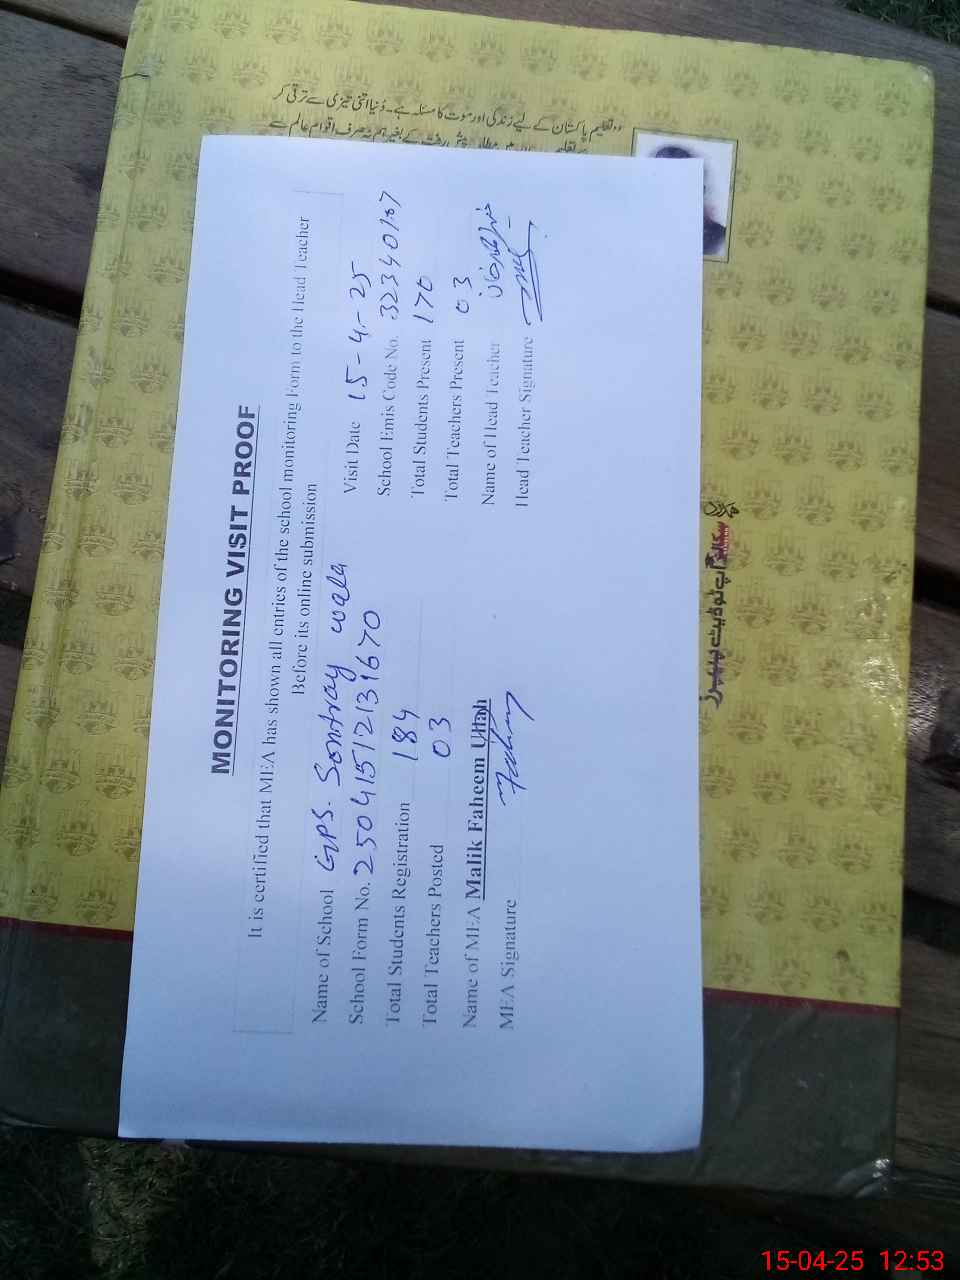 وہ تعلیم پاکستان کے لیے زندگی اور موت کا مسئلہ ہے۔ دُنیا اتنی تیزی سے ترقی کر
کے بغیر ہم نہ صرف اقوام عالم سے
MONITORING VISIT PROOF
It is certified that MEA has shown all entries of the school monitoring Form to the Head Teacher
Before its online submission
Name of School GPS. Sontray wala
Visit Date 15-4-25
School Form No. 25041512131670
School Emis Code No. 32340187
Total Students Registration 184
Total Students Present 170
Total Teachers Posted 03
Total Teachers Present 03
Name of MEA Malik Faheem Ullah
Name of Head Teacher
MEA Signature
Head Teacher Signature
سکالر اَپ ٹو ڈیٹ پیپرز
15-04-25 12:53